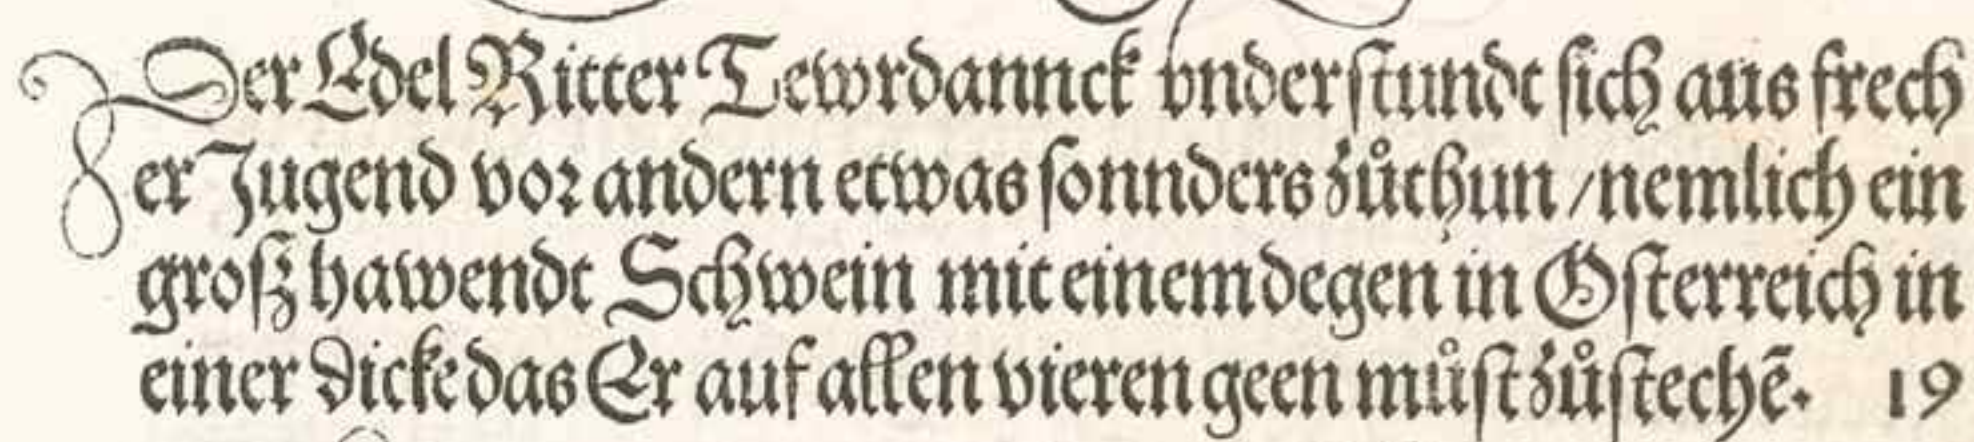 Der Edel Ritter Tewrdannck vnderſtundt ſich aus frech
er Jugend vor andern etwas ſonnders zůthun / nemlich ein
groſz hawendt Schwein mit einem degen in Oſterreich in
einer dicke das Er auf allen vieren geen můſt zůſtechẽ. 19